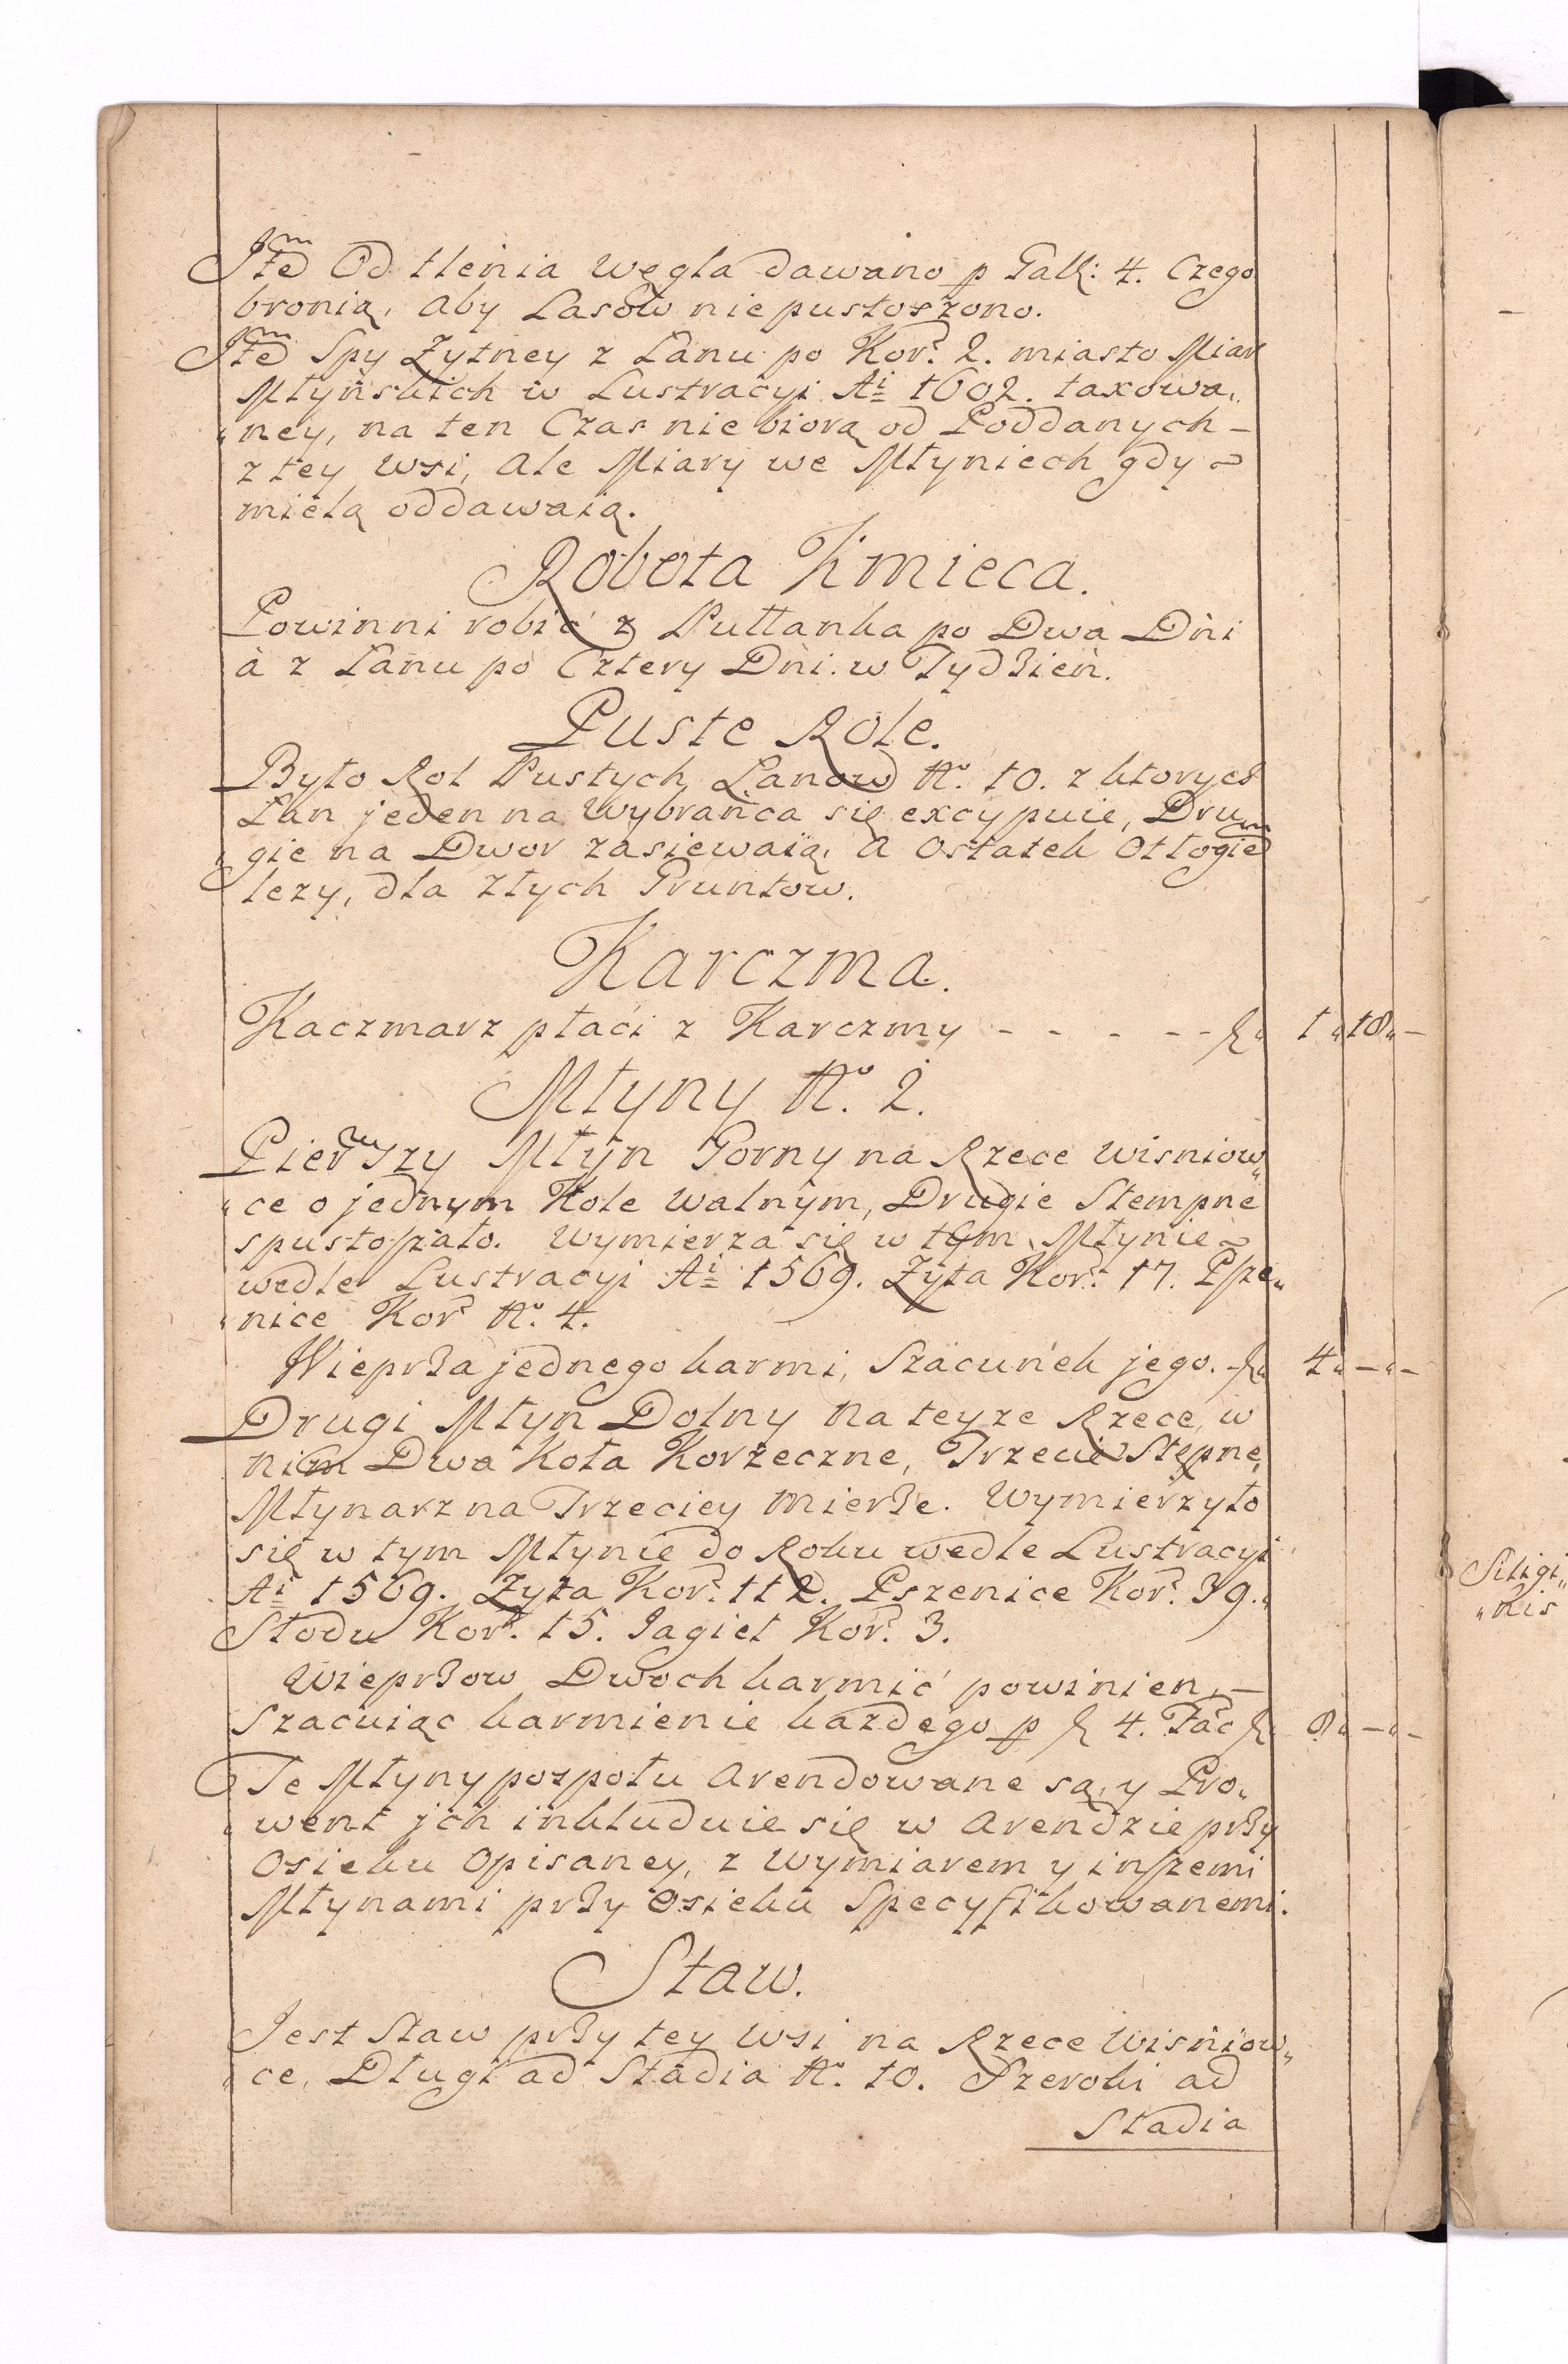 Itē Od tlenia węgla dawano p Talk: 4. Czego
bronią, aby Lasow nie pustoszono.
Itē Spy Zytney z Łanu po Kor. 2. miasto Miar
Młynskich w Lustracyi Ai 1602. taxowa„
„ney, na ten Czas nie biorą od Poddanych –
z tey wsi, ale Miary we Młyniech gdy
mielą oddawaią.
Robota Kmieca.
Powinni robić z Pułłanka po Dwa Dni
à z Łanu po Cztery Dni. w Tydzień.
Puste Role.
Było Rol Pustych Łanow No. 10. z ktorych
Łan jeden na Wybrańca się excypuie, Dru„
„gie na Dwor zasiewaią, a Ostatek Otłogiē
lezy, dla złych Gruntow.
Karczma.
Kaczmarz płaci z Karczmy - - - - - f„ 1„ 18„ –
Młyny No. 2.
Pierwszy Młyn Gorny na Rzece Wisniow„
„ce o jednym Kole walnym, Drugie Stempne
spustoszało. Wymierza się w tym Młynie
wedle Lustracyi Ai 1569. Zyta Kor. 17. Psze„
„nice Kor No. 4.
Wieprza jednego karmi, Szacunek jego. f„ 4„ –„ –
Drugi Młyn Dolny na teyze Rzece, w
nim Dwa Koła Korzeczne, Trzecie Stępne,
Młynarz na Trzeciey mierze. Wymierzyło
się w tym Młynie do Roku wedle Lustracyi
Ai 1569. Zyta Kor. 112. Pszenice Kor. 39.„
Słodu Kor. 15. Jagieł Kor. 3.
Wieprzow Dwoch karmić powinien, –
Szacuiąc karmienie kazdego p f 4. Fac f„ 8„ –„ –
Te Młyny pospołu Arendowane są, y Pro„
„went jch inkluduie się w Arendzie przy
Osieku Opisaney, z wymiarem y inszemi
Młynami przy Osieku Specyfikowanemi.
Staw.
Jest Staw przy tey Wsi na Rzece Wisniow„
„ce, Długi ad Stadia No. 10. Szeroki ad
Stadia
Siligi„
„nis